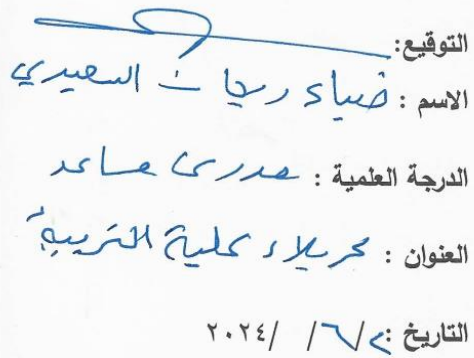 التوقيع:
الاسم : ضياء ريحان السعيدي
الدرجة العلمية : مدرس مساعد
العنوان : كربلاء كلية التربية
التاريخ : ٢/٦/ /٢٠٢٤